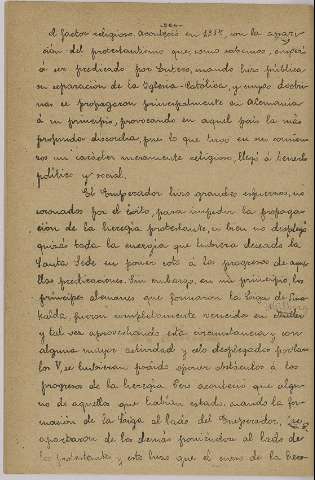 el factor religioso. Aconteció en 1517 con la apari-
ción del protestantismo que, como sabemos, empezó
á ser predicado por Lutero, cuando hizo pública
su separación de la Iglesia Católica, y cuyas doctri-
nas se propagaron principalmente en Alemania
á un principio, provocando en aquel país la más
profunda discordia, pues lo que tuvo en su comien-
zos un carácter meramente religioso, llegó á tenerlo
político y social.
El Emperador hizo grandes esfuerzos, no
coronados por el éxito, para impedir la propaga-
ción de la heregía protestante, si bien no desplegó
quizás toda la energía que hubiera deseado la
Santa Sede en poner coto á los progresos de aque-
llas predicaciones. Sin embargo, en un principio, los
príncipes alemanes que formaron la Liga de Smal-
kalda, fueron completamente vencidos en
y tal vez aprovechando esta circunstancia y con
alguna mayor actividad y celo desplegados por Car-
los V, se hubieran podido oponer obstáculos á los
progresos de la heregía. Pero aconteció que algu-
no de aquellos que habían estado, cuando la for-
mación de la Liga al lado del Emperador, se
apartaron de los demás poniéndose al lado de
los protestantes y esto hizo que el curso de la here-